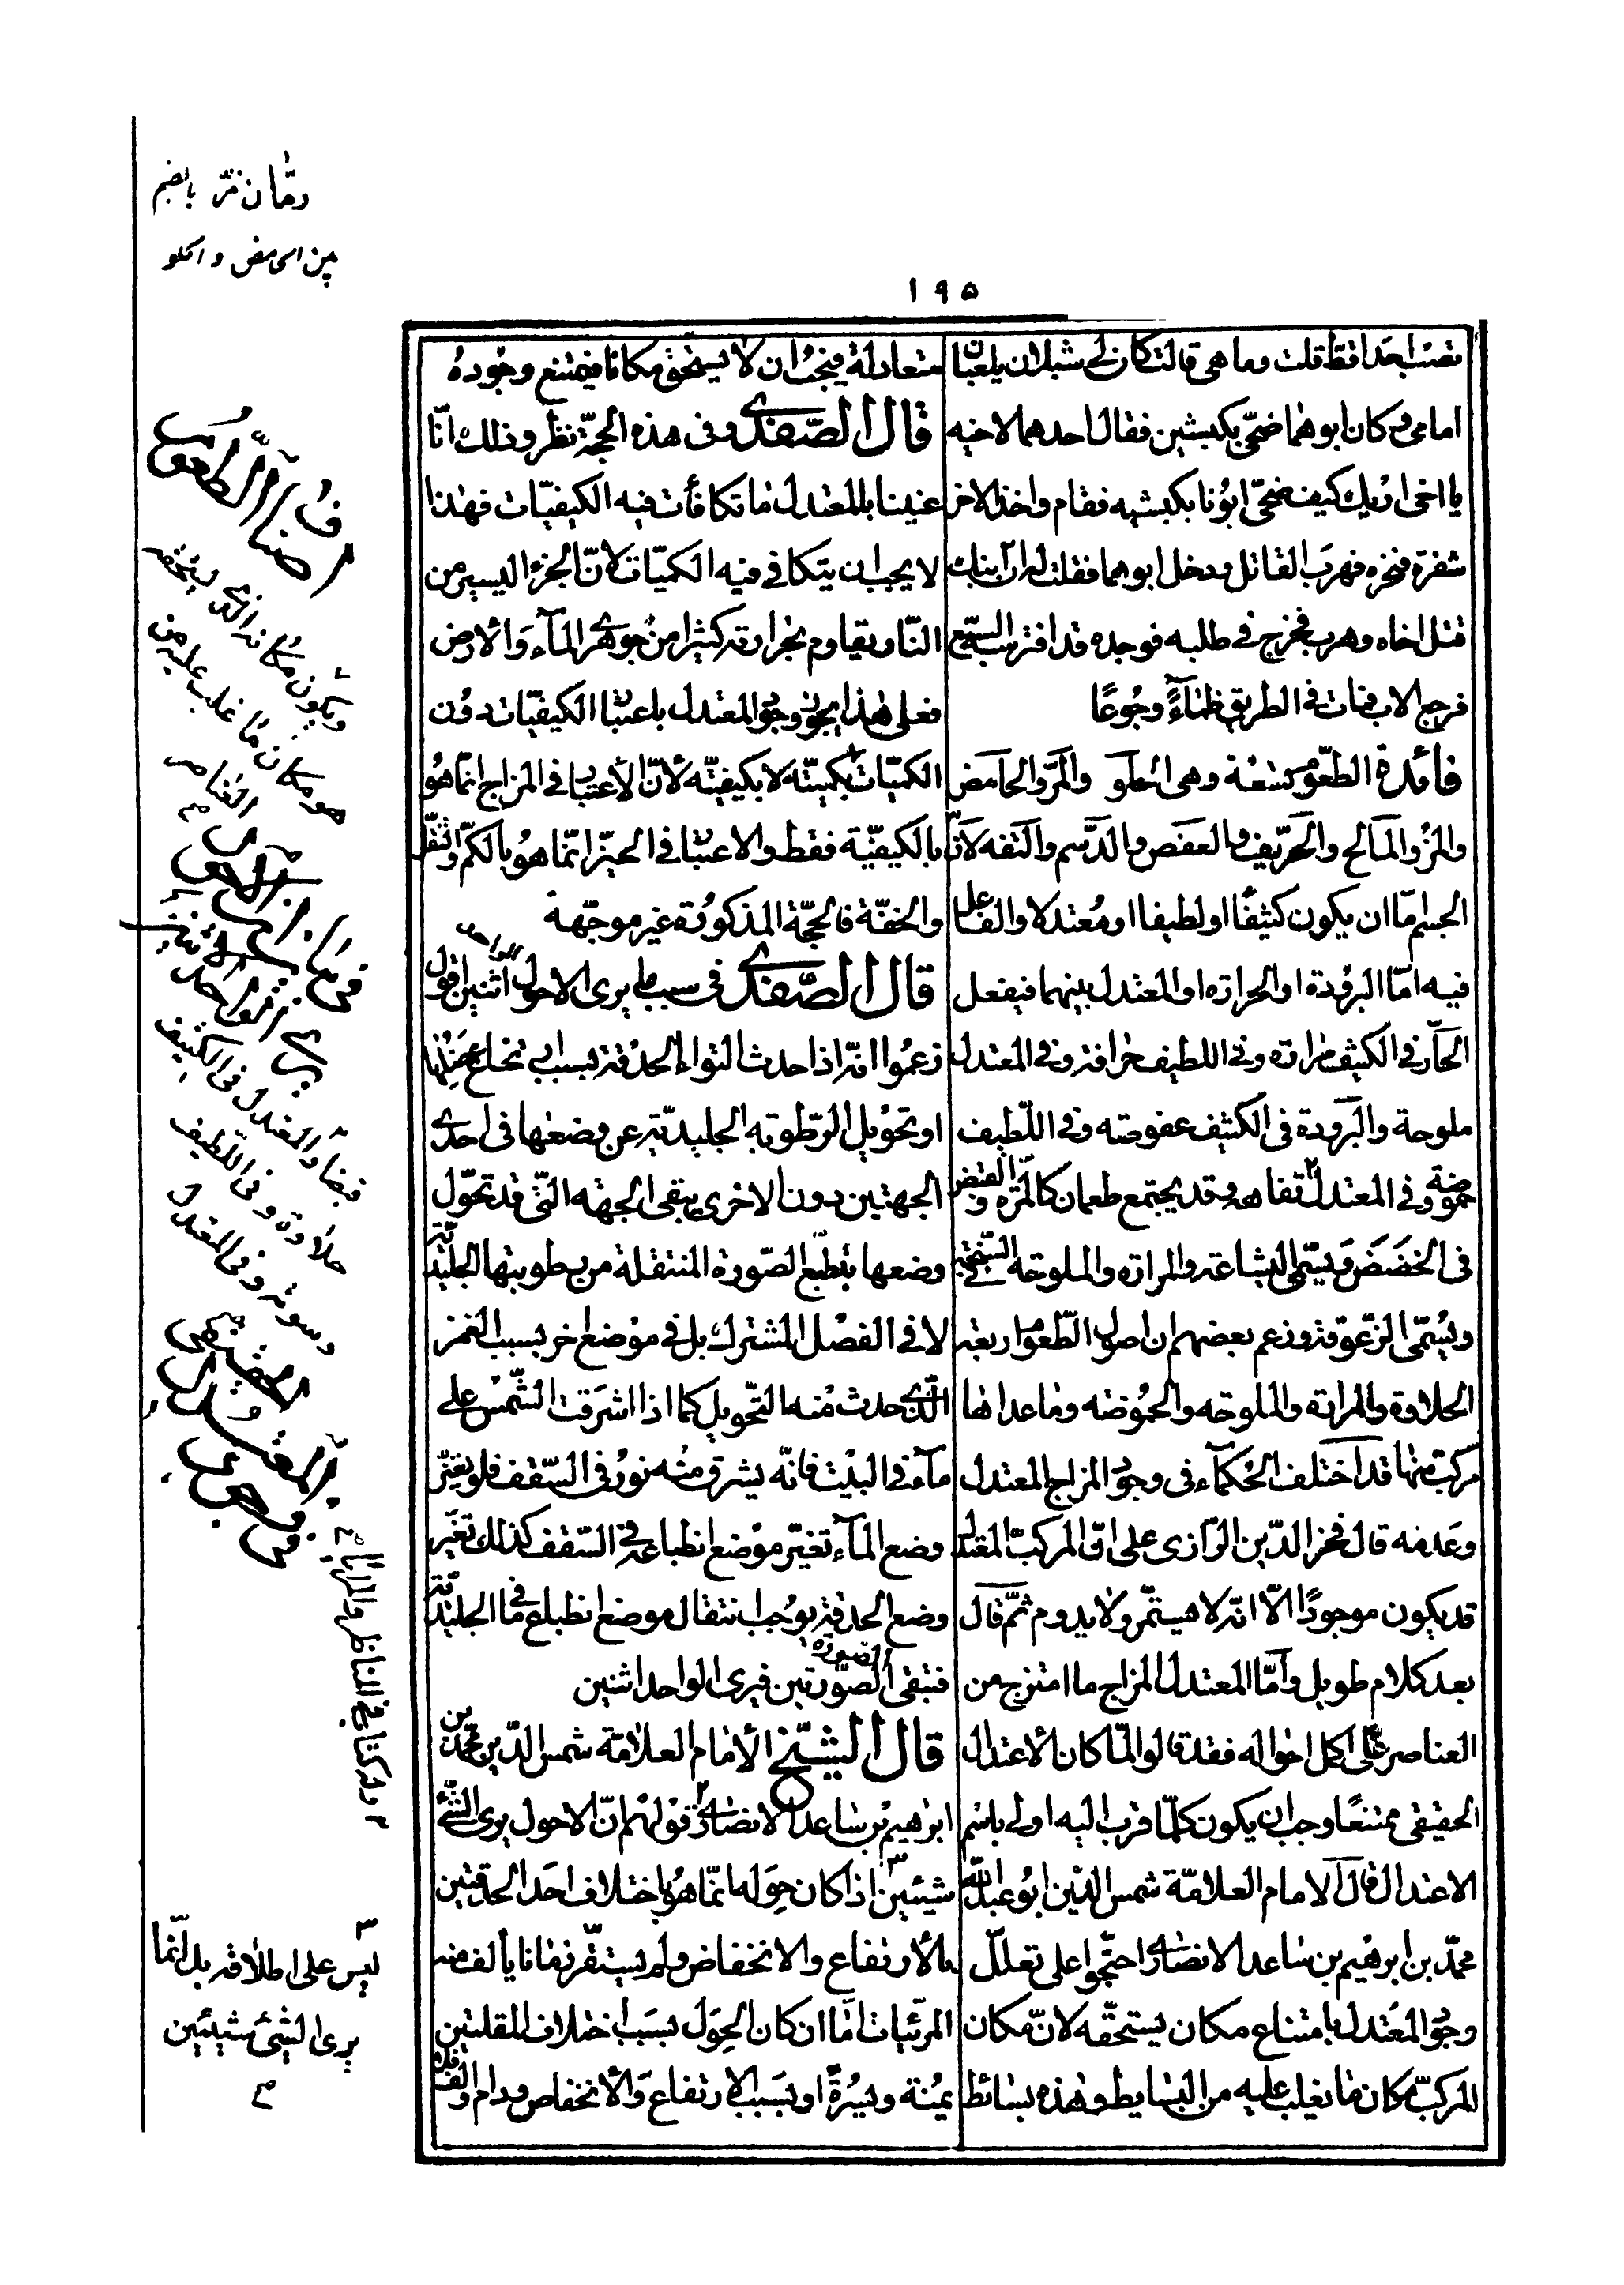 ۱۹۵
تصب احدا قط قلت وما هى قالت كان لى شبلان يلعبان
امامى وكان ابوهما ضحّى بكبشين فقال احدهما لاخيه
يا اخى اريك كيف ضحّى ابونا بكبشيه فقام واخذ الاخر
شفرة فنحره فهرب القاتل ودخل ابوهما فقلت له ان ابنك
قتل اخاه وهرب فخرج فى طلبه فوجده قد افترسه السبع
فرجع الاب فمات فى الطريق ظماءً وجوعًا
فائدة الطعوم تسعة وهى الحلو والمرّ والحامض
والمزّ والمالح والحرّيف والعفص والدّسم والتفه لانّ
الجسم امّا ان يكون كثيفًا او لطيفا او معتدلا والفاعل
فيه امّا البرودة او الحرارة او المعتدل بينهما فيفعل
الحارّ فى الكثيف مرارة وفى اللطيف حرافة وفى المعتدل
ملوحة والبرودة فى الكثيف عفوصة وفى اللّطيف
حموضة وفى المعتدل تفاهة وقد يجتمع طعمان كالمرّة والقبض
فى الخضض ويسمّى البشاعة والمرارة والملوحة
ويسمّى الزعوقة وزعم بعضهم ان اصول الطّعوم اربعة
الحلاوة والمرارة والملوحة والحموضة وما عداها
مركب منها قد اختلف الحكماء فى وجود المزاج المعتدل
وعدمه قال فخر الدّين الرّازى على انّ المركبّ المعتدل
قد يكون موجودًا الّا انّه لا يستمّر ولا يدوم ثمّ قال
بعد كلام طويل وامّا المعتدل المزاج ما امتزج من
العناصر على اكمل احواله فقد قالوا لمّا كان الاعتدال
الحقيقى ممتنعًا وجب ان يكون كلّما قرب اليه اولى باسم
الاعتدال قال الامام العلامّة شمس الدّين ابو عبد اللّه
محمّد بن ابرهيم بن ساعد الانصارى احتجّوا على تعلّل
وجود المعتدل بامتناع مكان يستحقّه لانّ مكان
المركبّ مكان ما يغلب عليه من البسايط وهذه بسائط
متعادلة فيجب ان لا يستحق مكانا فيمتنع وجوده
قال الصّفدى وفى هذه الحجّة نظر وذلك انّا
عنينا بالمعتدل ما تكافأت فيه الكيفيّات فهذا
لا يجب ان يتكافى فيه الكميّات لانّ الجزء اليسير من
النّار يقاوم بحرارته كثيرا من جوهرى المآء والارض
فعلى هذا يجوز وجود المعتدل باعتبار الكيفيّات دون
الكميّات بكميّته لا بكيفيتّه لأنّ الأعتبار فى المزاج انمّا هو
بالكيفيّة فقط والاعتبار فى الحيّز انّما هو بالكمّ والثقل
والخفّة فالحجّة المذكورة غير موجّهة
قال الصّفدى فى سبب ما يرى الاحول الواحد اثنين اقول
زعموا انّه اذا حدث التواء الحدقة بسبب ارتخاء
او تحويل الرّطوبة الجليديّة عن وضعها فى احدى
الجهتين دون الاخرى يبقى الجهة التّى قد تحوّل
وضعها بتطبّع الصّورة المنتقلة من رطوبتها الجليديّة
لا فى الفصل المشترك بل فى موضع اخر بسبب الغمز
الّذى حدث منه التحويل كما اذا اشرقت الشّمس على
مآء فى البيت فانّه يشرق منه نور فى السّقف فلو تغيّر
وضع المآء تغيّر موضع انطباعه فى السّقف كذلك تغيّر
وضع الحدقة يوجب انتقال موضع انطباع ما فى الجليديّة
فتبقى الصّورة الصّورتين فيرى الواحد اثنين
قال الشّيخ الأمام العلامّة شمس الدّين محمّد بن
ابرهيم بن ساعد الانصارى قولهم انّ الاحول يرى الشّئ
شيئين اذا كان حوله انمّا هو باختلاف احد الحدقتين
بالأرتفاع والانخفاض ولم يستقّر زمانا يألف منه
المرئيات امّا ان كان الحول بسبب اختلاف المقلتين
يمنة ويسرةً او بسبب الارتفاع والأنخفاض ودام والف
رمّان مزّ بالضم
بين الحامض والحلو
اصناف الطعوم
ويكون مكانه الّذى يستحقه
هو مكان ما غلب عليه من
العناصر
فى ان الاحول
يرى الواحد
اثنين
قبضا والمعتدل فى الكثيف
حلاوة وفى اللّطيف
دسومة وفى المعتدل
٢ وذكر كتاب المناظر والمرايا
٣
ليس على اطلاقه بل انّما
يرى الشئ شيئين